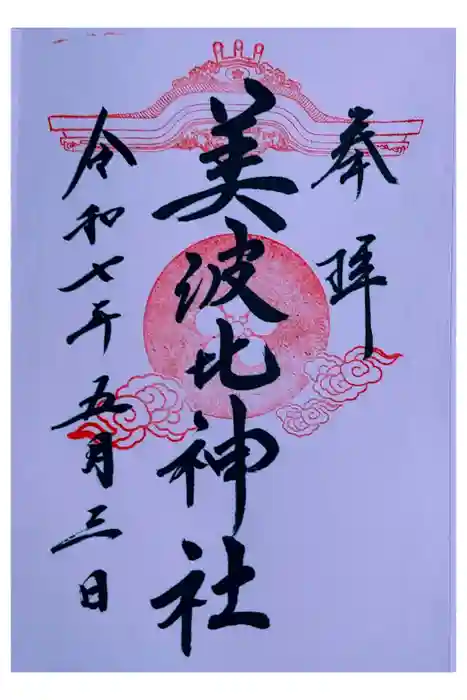 奉拝
美波比神社
令和七年五月三日